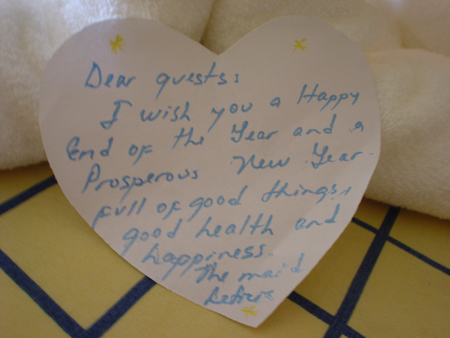 Dear guests:
I wish you a Happy
End of the Year and a
Prosperous New Year.
full of good things,
good health and
happiness.
The maid